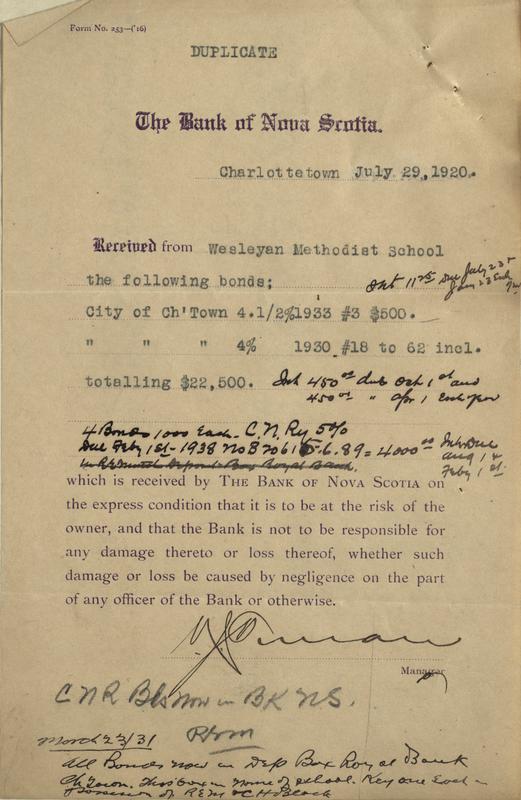 Form No. 253—('16)
DUPLICATE
The Bank of Nova Scotia.
Charlottetown July 29, 1920.
Received from Wesleyan Methodist School
the following bonds;
Int 11 25 Due July 23 &
Jany 23 Each
City of Ch'Town 4.1/2% 1933 #3 $500.
" " " 4% 1930 #18 to 62 incl.
totalling $22,500. Int 450 00 due Oct 1st and
450 00 " Apr 1 Each year
4 Bonds 1000 Each - C.N.Ry 5%
Due Feby 1st - 1938 No B7061 5.6.89 = 4000 00 Int Due
Aug 1 &
Feby 1st
Deposit Box Royal Bank.
which is received by The Bank of Nova Scotia on
the express condition that it is to be at the risk of the
owner, and that the Bank is not to be responsible for
any damage thereto or loss thereof, whether such
damage or loss be caused by negligence on the part
of any officer of the Bank or otherwise.
Manager
C N R Bds now in BK N.S.
March 23/31
All Bonds now in Dep Box Royal Bank
Ch Town. This box in name of school. Key one Each in
possession of R.E.M & C H Black